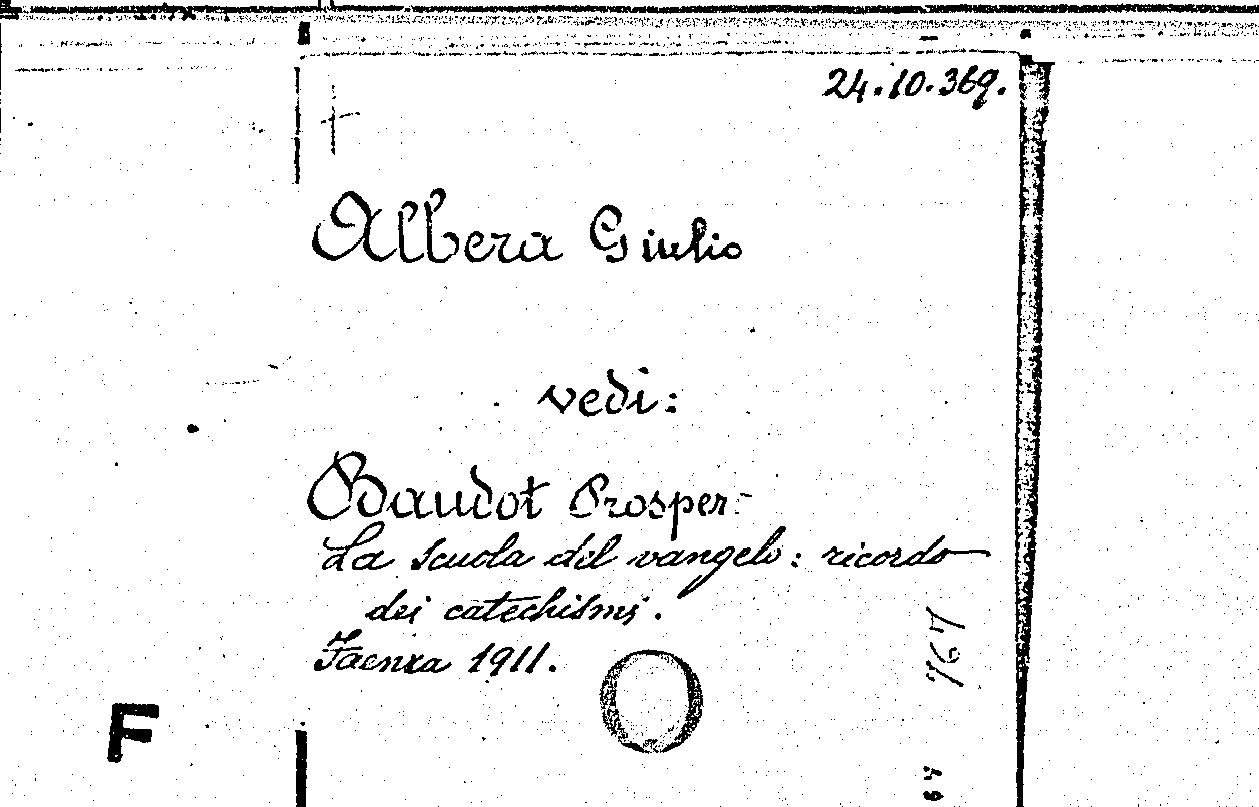 24.10.369.
Albera Giulio
vedi:
Baudot Prosper.
La scuola del vangelo: ricordo
dei catechismi.
Faenza 1911.
F